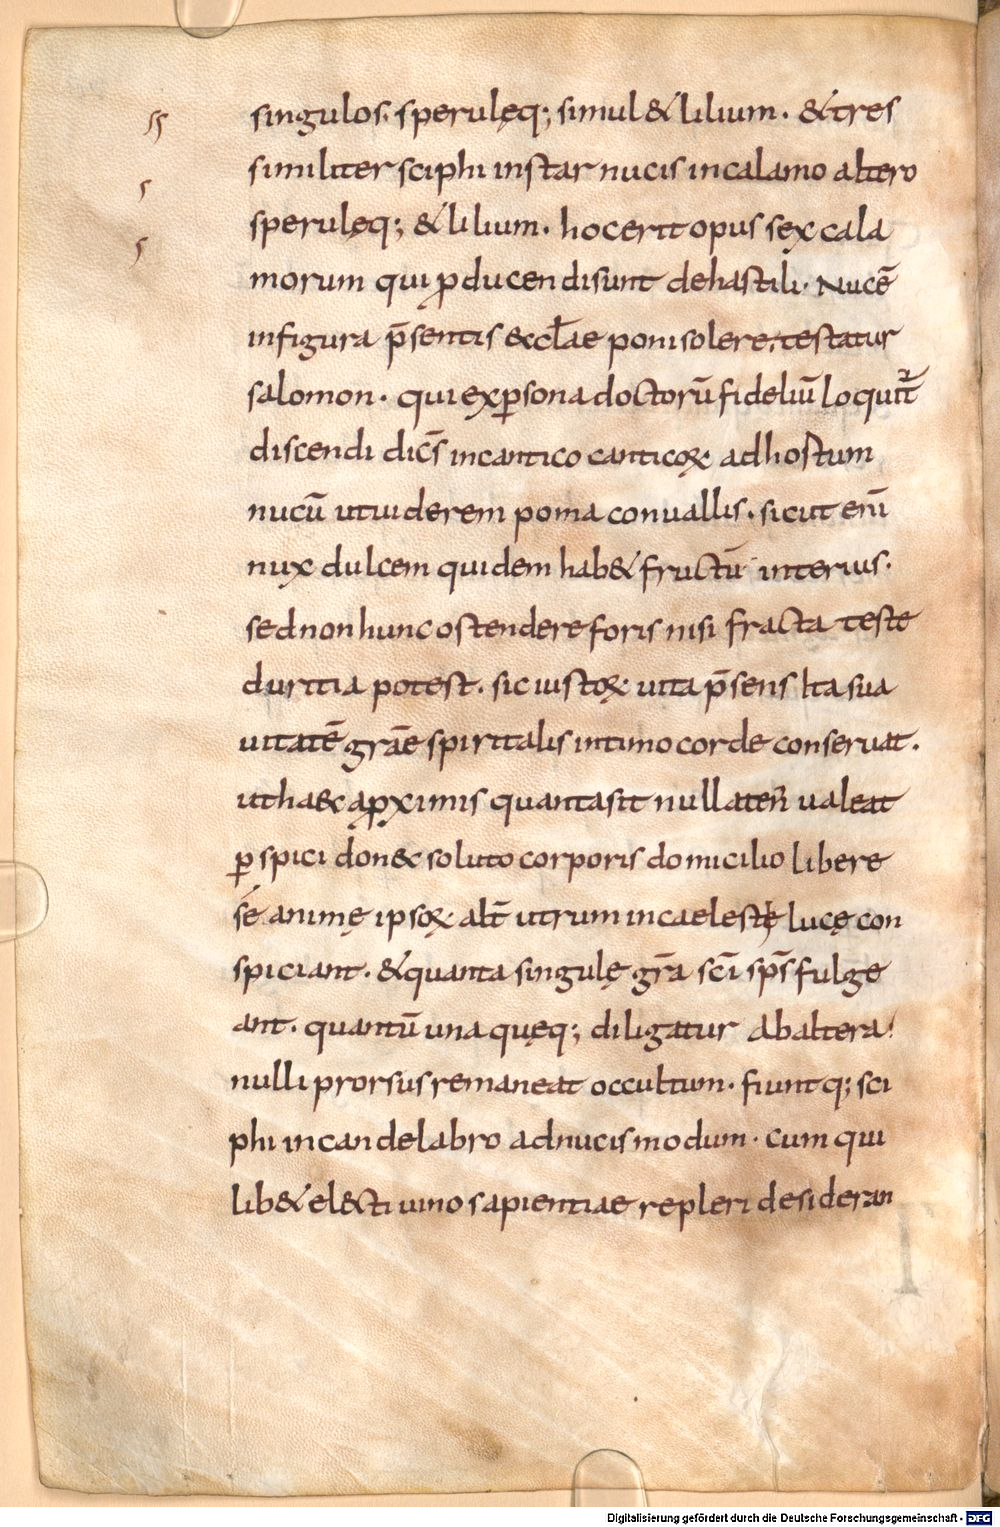 singulos. sperulęq; simul & lilium. & tres
similiter sciphi instar nucis in calamo altero
sperulęq; & lilium. hoc erit opus sex cala
morum qui ꝓducendi sunt de hastili. Nucē
in figura p̄sentis ęccl̄ae poni solere, testatur
salomon. qui ex ꝑsona doctorū fideliū loquit᷑
discendi dic̄s in cantico canticoꝝ ad hostum
nucū ut uiderem poma conuallis. sicut eni̅
nux dulcem quidem hab& fructū interius.
sed non hunc ostendere foris nisi fracta teste
duritia potest. sic iustoꝝ uita p̄sens Ita sua
uitatē gr̄ae spiritalis intimo corde conseruat.
ut haec a ꝓximis quanta sit nullaten̄ ualeat
ꝑspici donec soluto corporis domicilio libere
sé animę ipsoꝝ alt̄ utrum in caelestę lucę con
spiciant. & quanta singulę gr̄a sc̄i sp̄s fulge
ant. quantū una quęq; diligatur ab altera!
nulli prorsus remaneat occultum. fiuntq; sci
phi in candelabro ad nucis modum. cum qui
lib& el&cti uino sapientiae repleri desideran
Digitalisierung gefördert durch die Deutsche Forschungsgemeinschaft - DFG